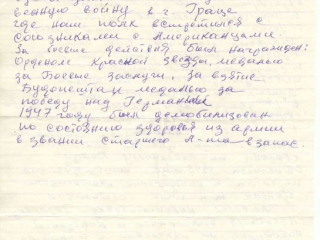 венную войну в г. Граце
где наш полк встретился с
союзниками с Американцами
За боевые действия был награжден:
Орденом Красной звезды, медалью
за Боевые заслуги, За взятие
Будопешта и медалью за
победу над Германией
1947 году был демобилизован
по состоянию здоровья из армии
в звании старшего л-та в запас.